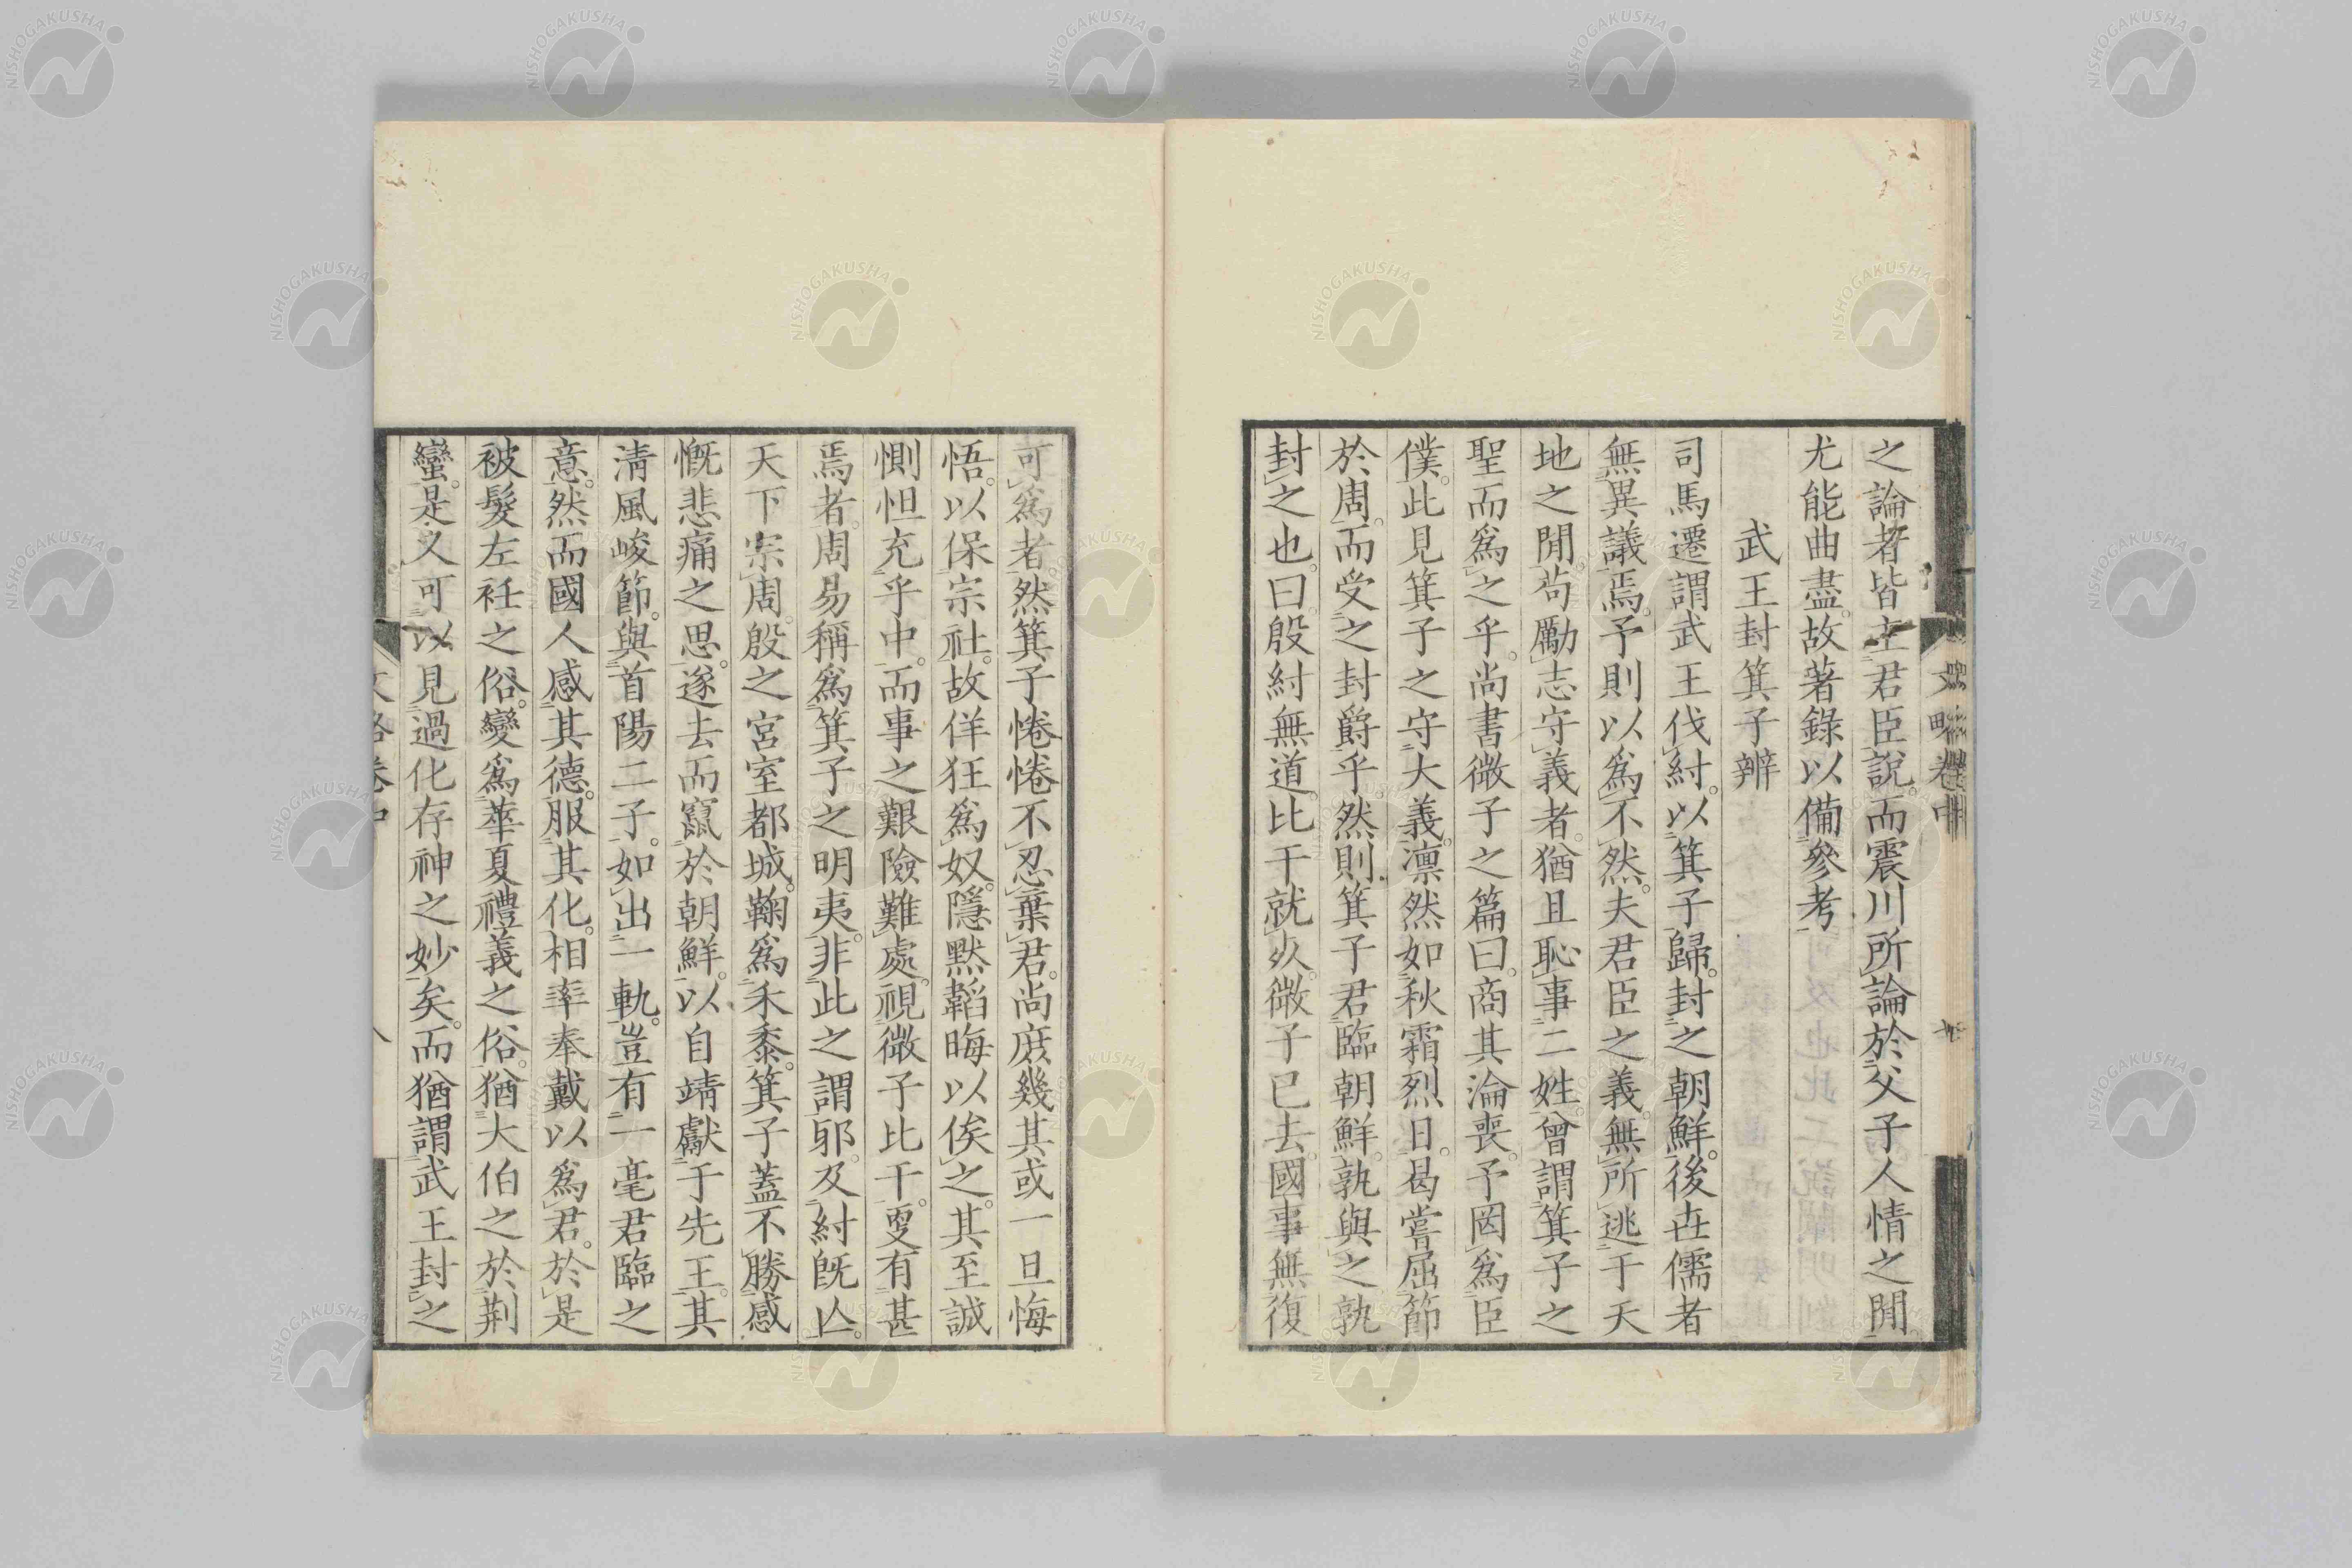 之論者皆主君臣說。而震川所論於父子人情之閒
尤能曲盡。故著錄以備參考
武王封箕子辨
司馬遷謂武王伐紂。以箕子歸。封之朝鮮。後世儒者
無異議焉。予則以爲不然。夫君臣之義。無所逃于天
地之閒。苟勵志守義者。猶且恥事二姓。曾謂箕子之
聖而爲之乎。尚書微子之篇曰。商其淪喪。予罔爲臣
僕。此見箕子之守大義。凛然如秋霜烈日。曷嘗屈節
於周。而受之封爵乎。然則箕子君臨朝鮮。孰與之。孰
封之也。曰。殷紂無道。比干就死。微子已去。國事無復
可爲者。然箕子惓惓不忍棄君。尚庶幾其或一旦悔
悟。以保宗社。故佯狂爲奴。隱默韜晦以俟之。其至誠
惻怛充乎中。而事之艱險難處。視微子比干。更有甚
焉者。周易稱爲箕子之明夷。非此之謂邪。及紂既亾。
天下宗周。殷之宮室都城。鞠爲禾黍。箕子蓋不勝感
慨悲痛之思。遂去而竄於朝鮮。以自靖獻于先王。其
清風峻節。與首陽二子。如出一軌。豈有一毫君臨之
意。然而國人感其德。服其化。相率奉戴以爲君。於是
被髮左衽之俗。變爲華夏禮義之俗。猶大伯之於荆
蠻。是又可以見過化存神之妙矣。而猶謂武王封之
文略卷中
文略卷中
八
NISHOGAKUSHA